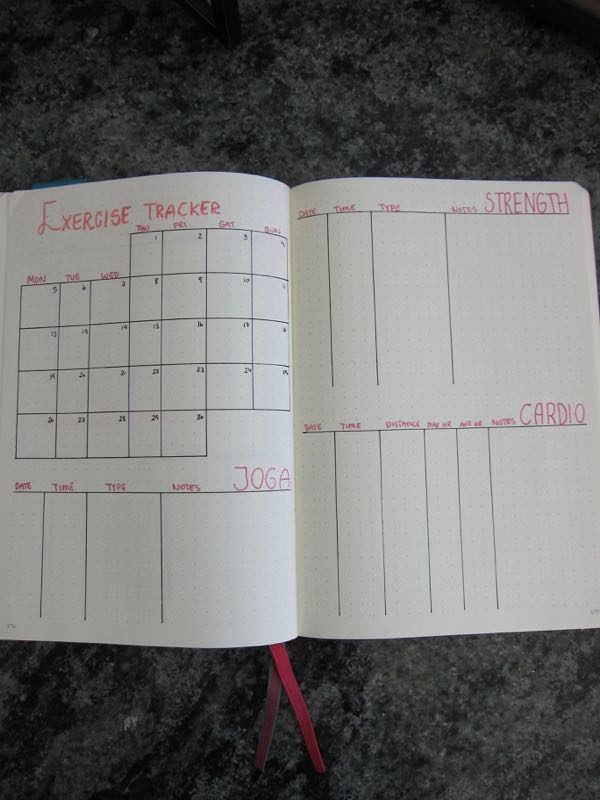 EXERCISE TRACKER
THU FRI SAT SUN
1 2 3 4
MON TUE WED
5 6 7 8 9 10 11
12 13 14 15 16 17 18
19 20 21 22 23 24 25
26 27 28 29 30
JOGA
DATE TIME TYPE NOTES
176
STRENGTH
DATE TIME TYPE NOTES
CARDIO
DATE TIME DISTANCE MAX HR AVR HR NOTES
177